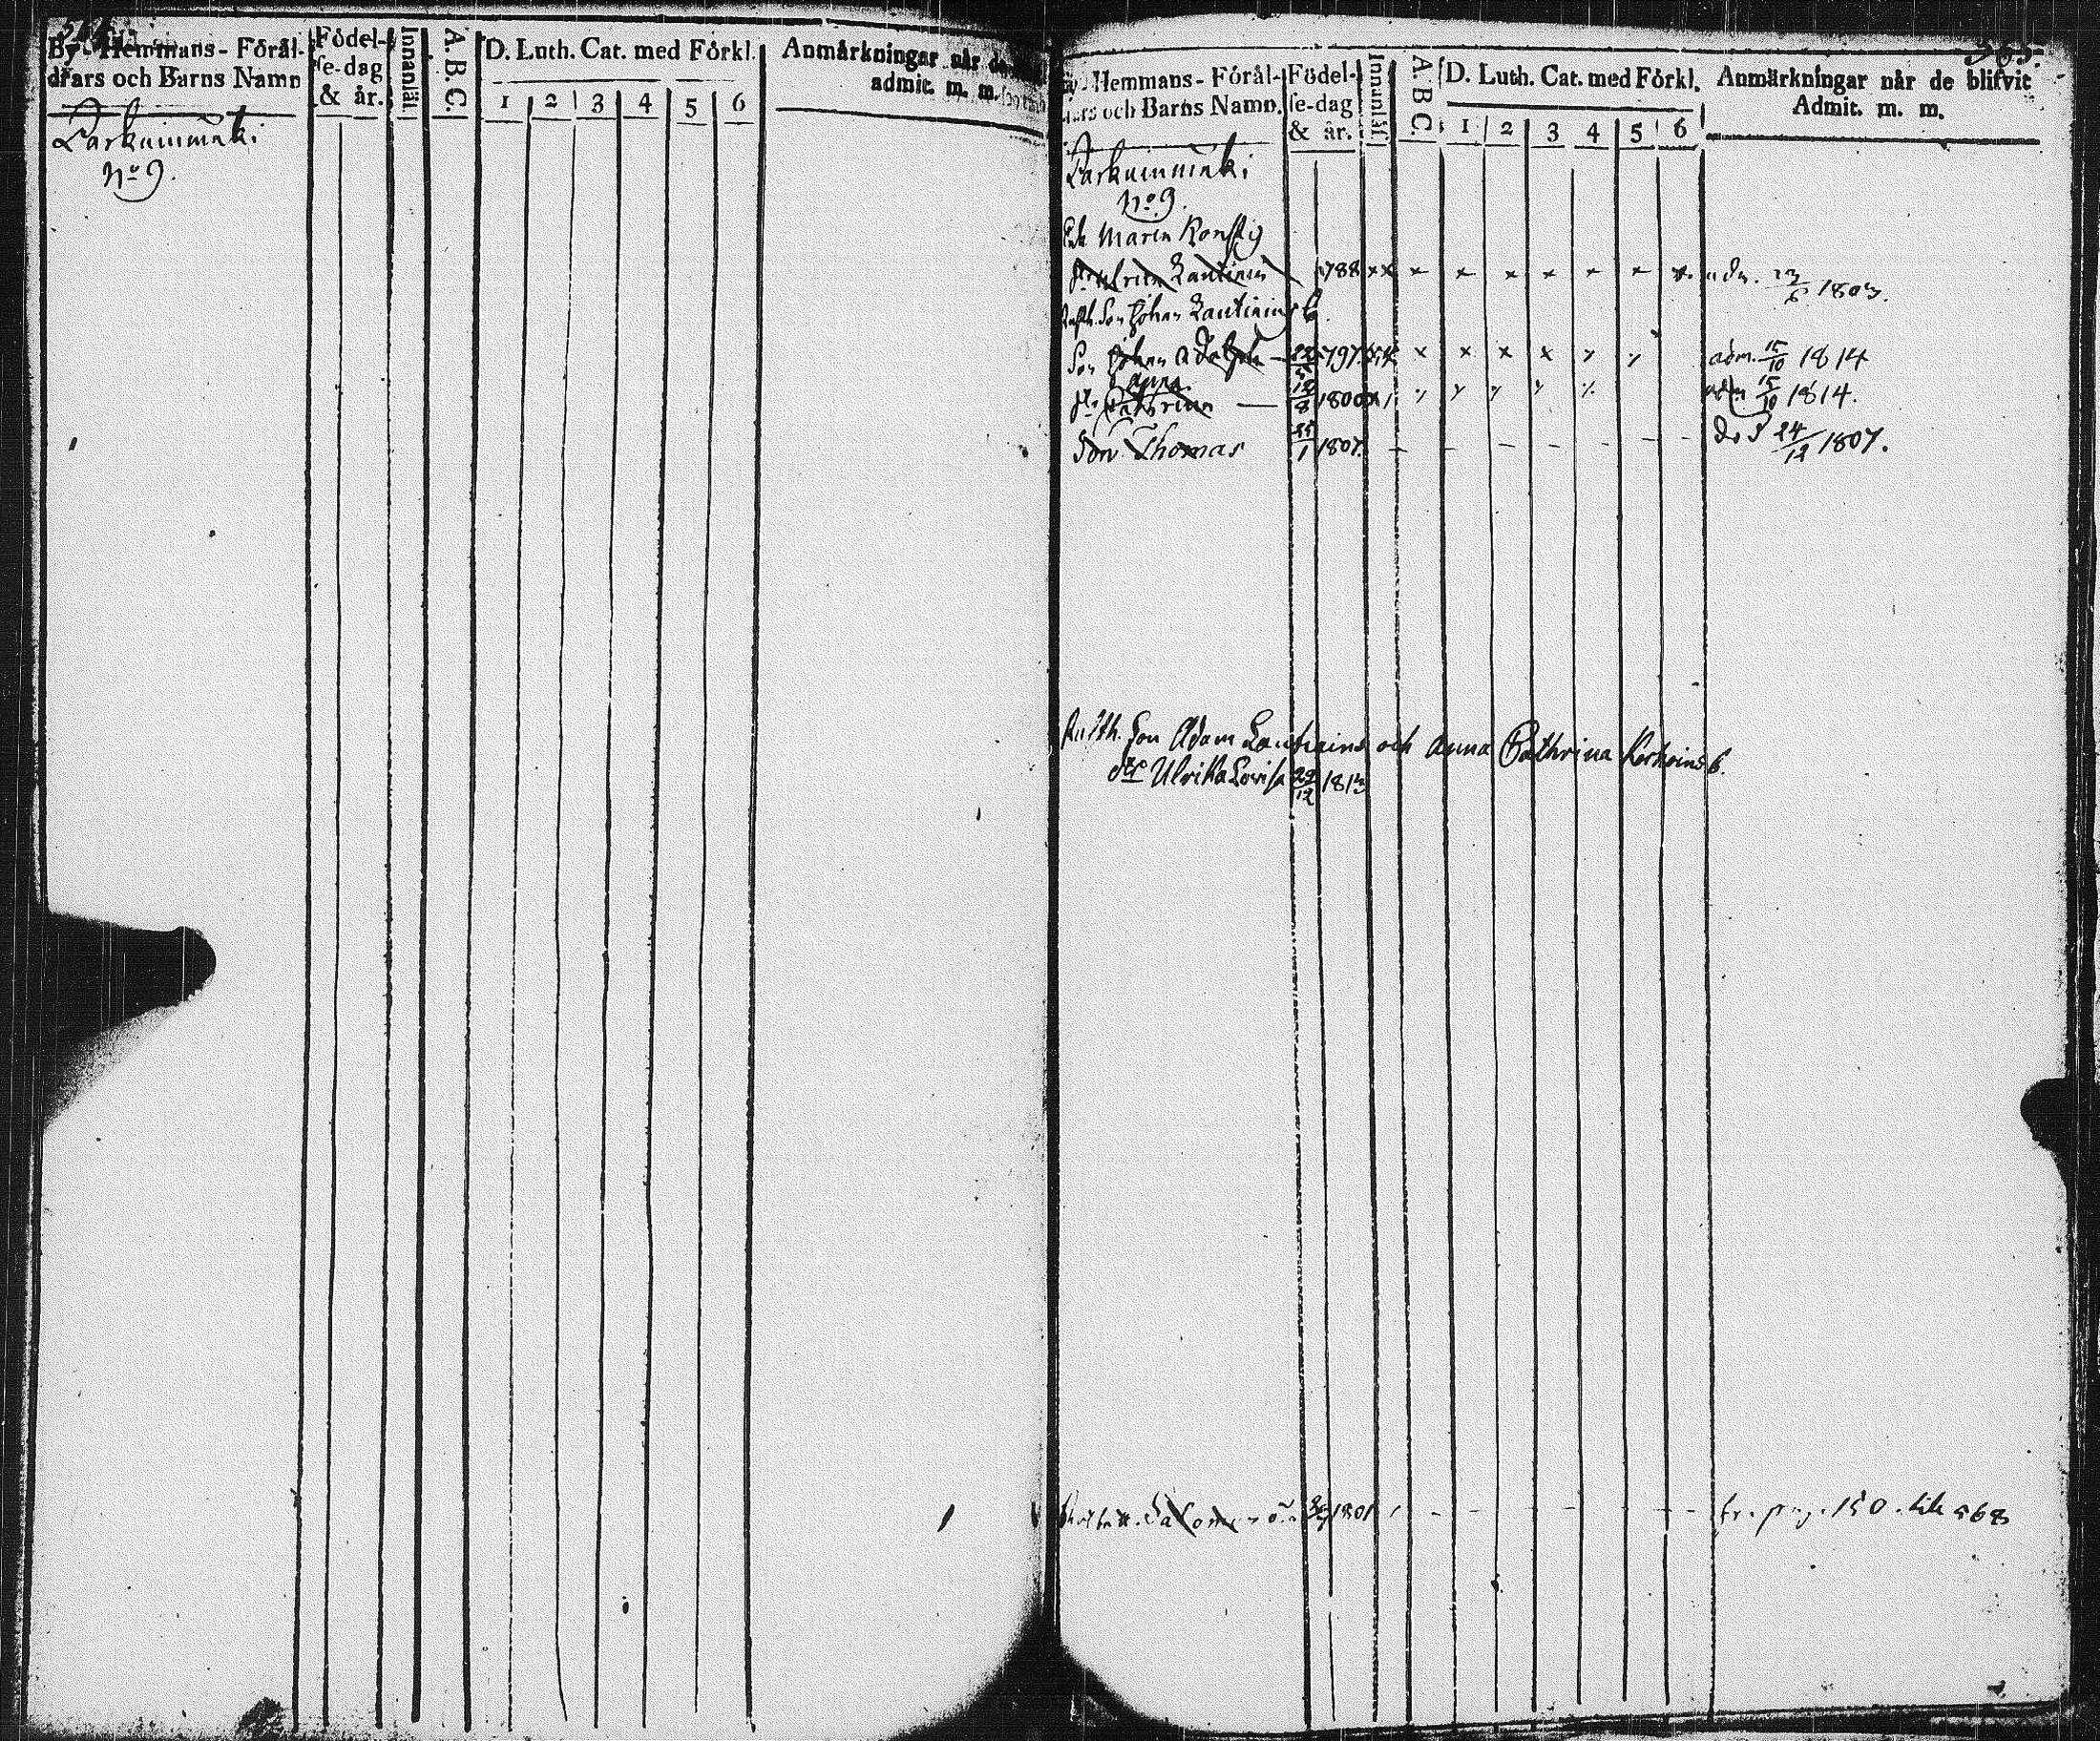 By- Hemmans- Förål-
drars och Barns Namn
Födel-
se-dag
& år.
Innanläs.
A. B. C.
D. Luth. Cat. med Förkl.
1 2 3 4 5 6
Anmärkningar når de
admit. m. m.
Larkuinmäki
No 9.
565.
By- Hemmans- Förål-
drars och Barns Namn.
Födel-
se-dag
& år.
Innanläs.
A. B. C.
D. Luth. Cat. med Förkl.
1 2 3 4 5 6
Anmärkningar når de blifvit
Admit. m. m.
Larkuinmäki
No 9.
Enk. Maria
1788 x x x x x x x x x adm. 1803.
Rusth. Son Johan Lautiains
Son Johan Adolph 22/5 1797 x x x x x adm. 15/10 1814
Anna
Cathrina 12/8 1800 adm 15/10 1814.
Son Thomas 25/1 1807. – – – – – – död 24/12 1807.
Rusth. Son Adam Lautiains och Anna Cathrina
dr Ulrika Lovisa 22/12 1813
Salomon 1801 – – – – fr. pag. 150. till 568